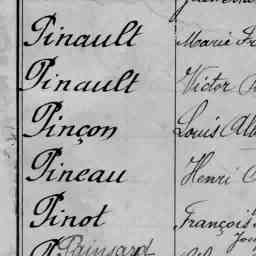 Pinault Marie
Pinault Victor
Pinçon Louis
Pineau Henri
Pinot François
Painsard